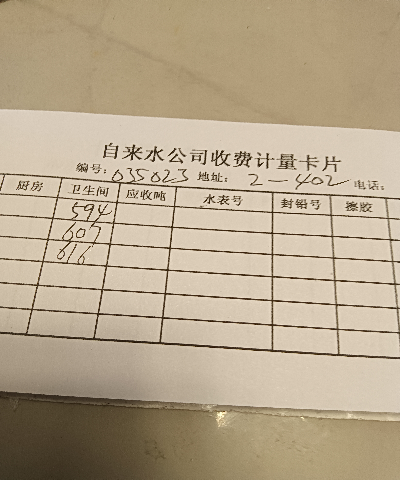 自来水公司收费计量卡片
编号: 035023 地址: 2-402 电话:
厨房 卫生间 应收吨 水表号 封铅号 擦胶
594
607
616